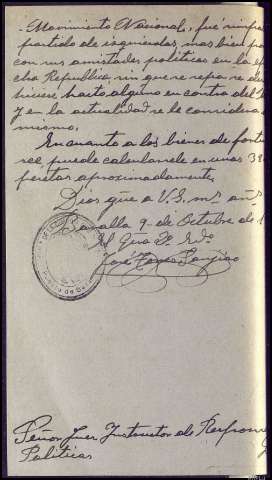 Movimiento Nacional, fué simpa
partido de izquierdas, mas bien po
con sus amistades politicas en la ep
cha Republica, sin que se sepa se de
hiciere hasto alguno en contra del
y en la actualidad se le considera
mismo.
En cuanto a los bienes de fortu
see puede calcularsele en unas 3
pesetas aproximadamente
Dios gúe a V.S. mˢ añˢ
9 de Octubre de 1
El
José
Señor Juez Instructor de Respons
Politicas